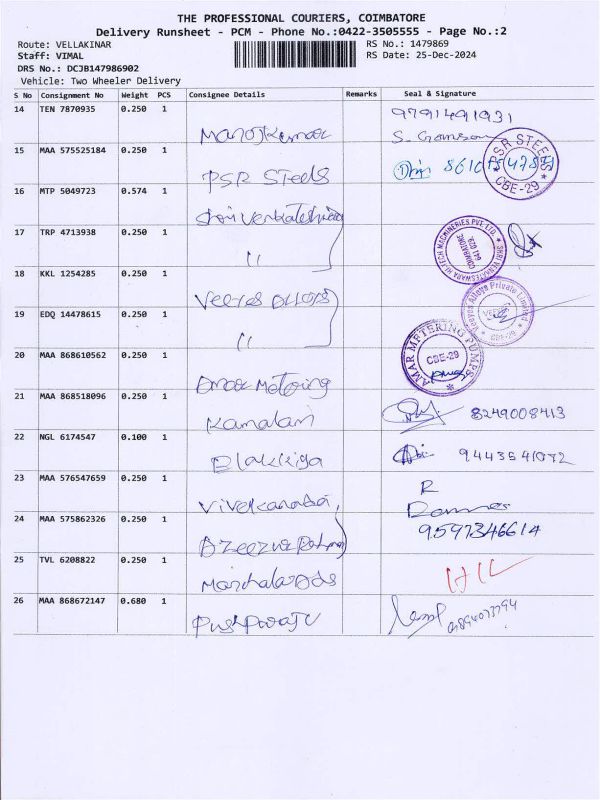 THE PROFESSIONAL COURIERS, COIMBATORE
Delivery Runsheet - PCM - Phone No.:0422-3505555 - Page No.:2
Route: VELLAKINAR
RS No.: 1479869
Staff: VIMAL
RS Date: 25-Dec-2024
DRS No.: DCJB147986902
Vehicle: Two Wheeler Delivery
S No Consignment No Weight PCS Consignee Details Remarks Seal & Signature
14 TEN 7870935 0.250 1 Manojkumar 9791491931
15 MAA 575525184 0.250 1 PSR Steels
PSR STEELS * CBE-29 *
16 MTP 5049723 0.574 1
17 TRP 4713938 0.250 1 "
SHRI VENKATESWARA HI-TECH MACHINERIES PVT. LTD. * COIMBATORE 641 029.
18 KKL 1254285 0.250 1
19 EDQ 14478615 0.250 1 "
Veeyes Alloys Private Limited * CBE-29 *
20 MAA 868610562 0.250 1 Amar Metering
AMAR METERING PUMPS * CBE-29
21 MAA 868518096 0.250 1 Kamalam 8249008413
22 NGL 6174547 0.100 1 Elakkiya
23 MAA 576547659 0.250 1 R
24 MAA 575862326 0.250 1 9597346614
25 TVL 6208822 0.250 1
26 MAA 868672147 0.680 1 Pushparaju